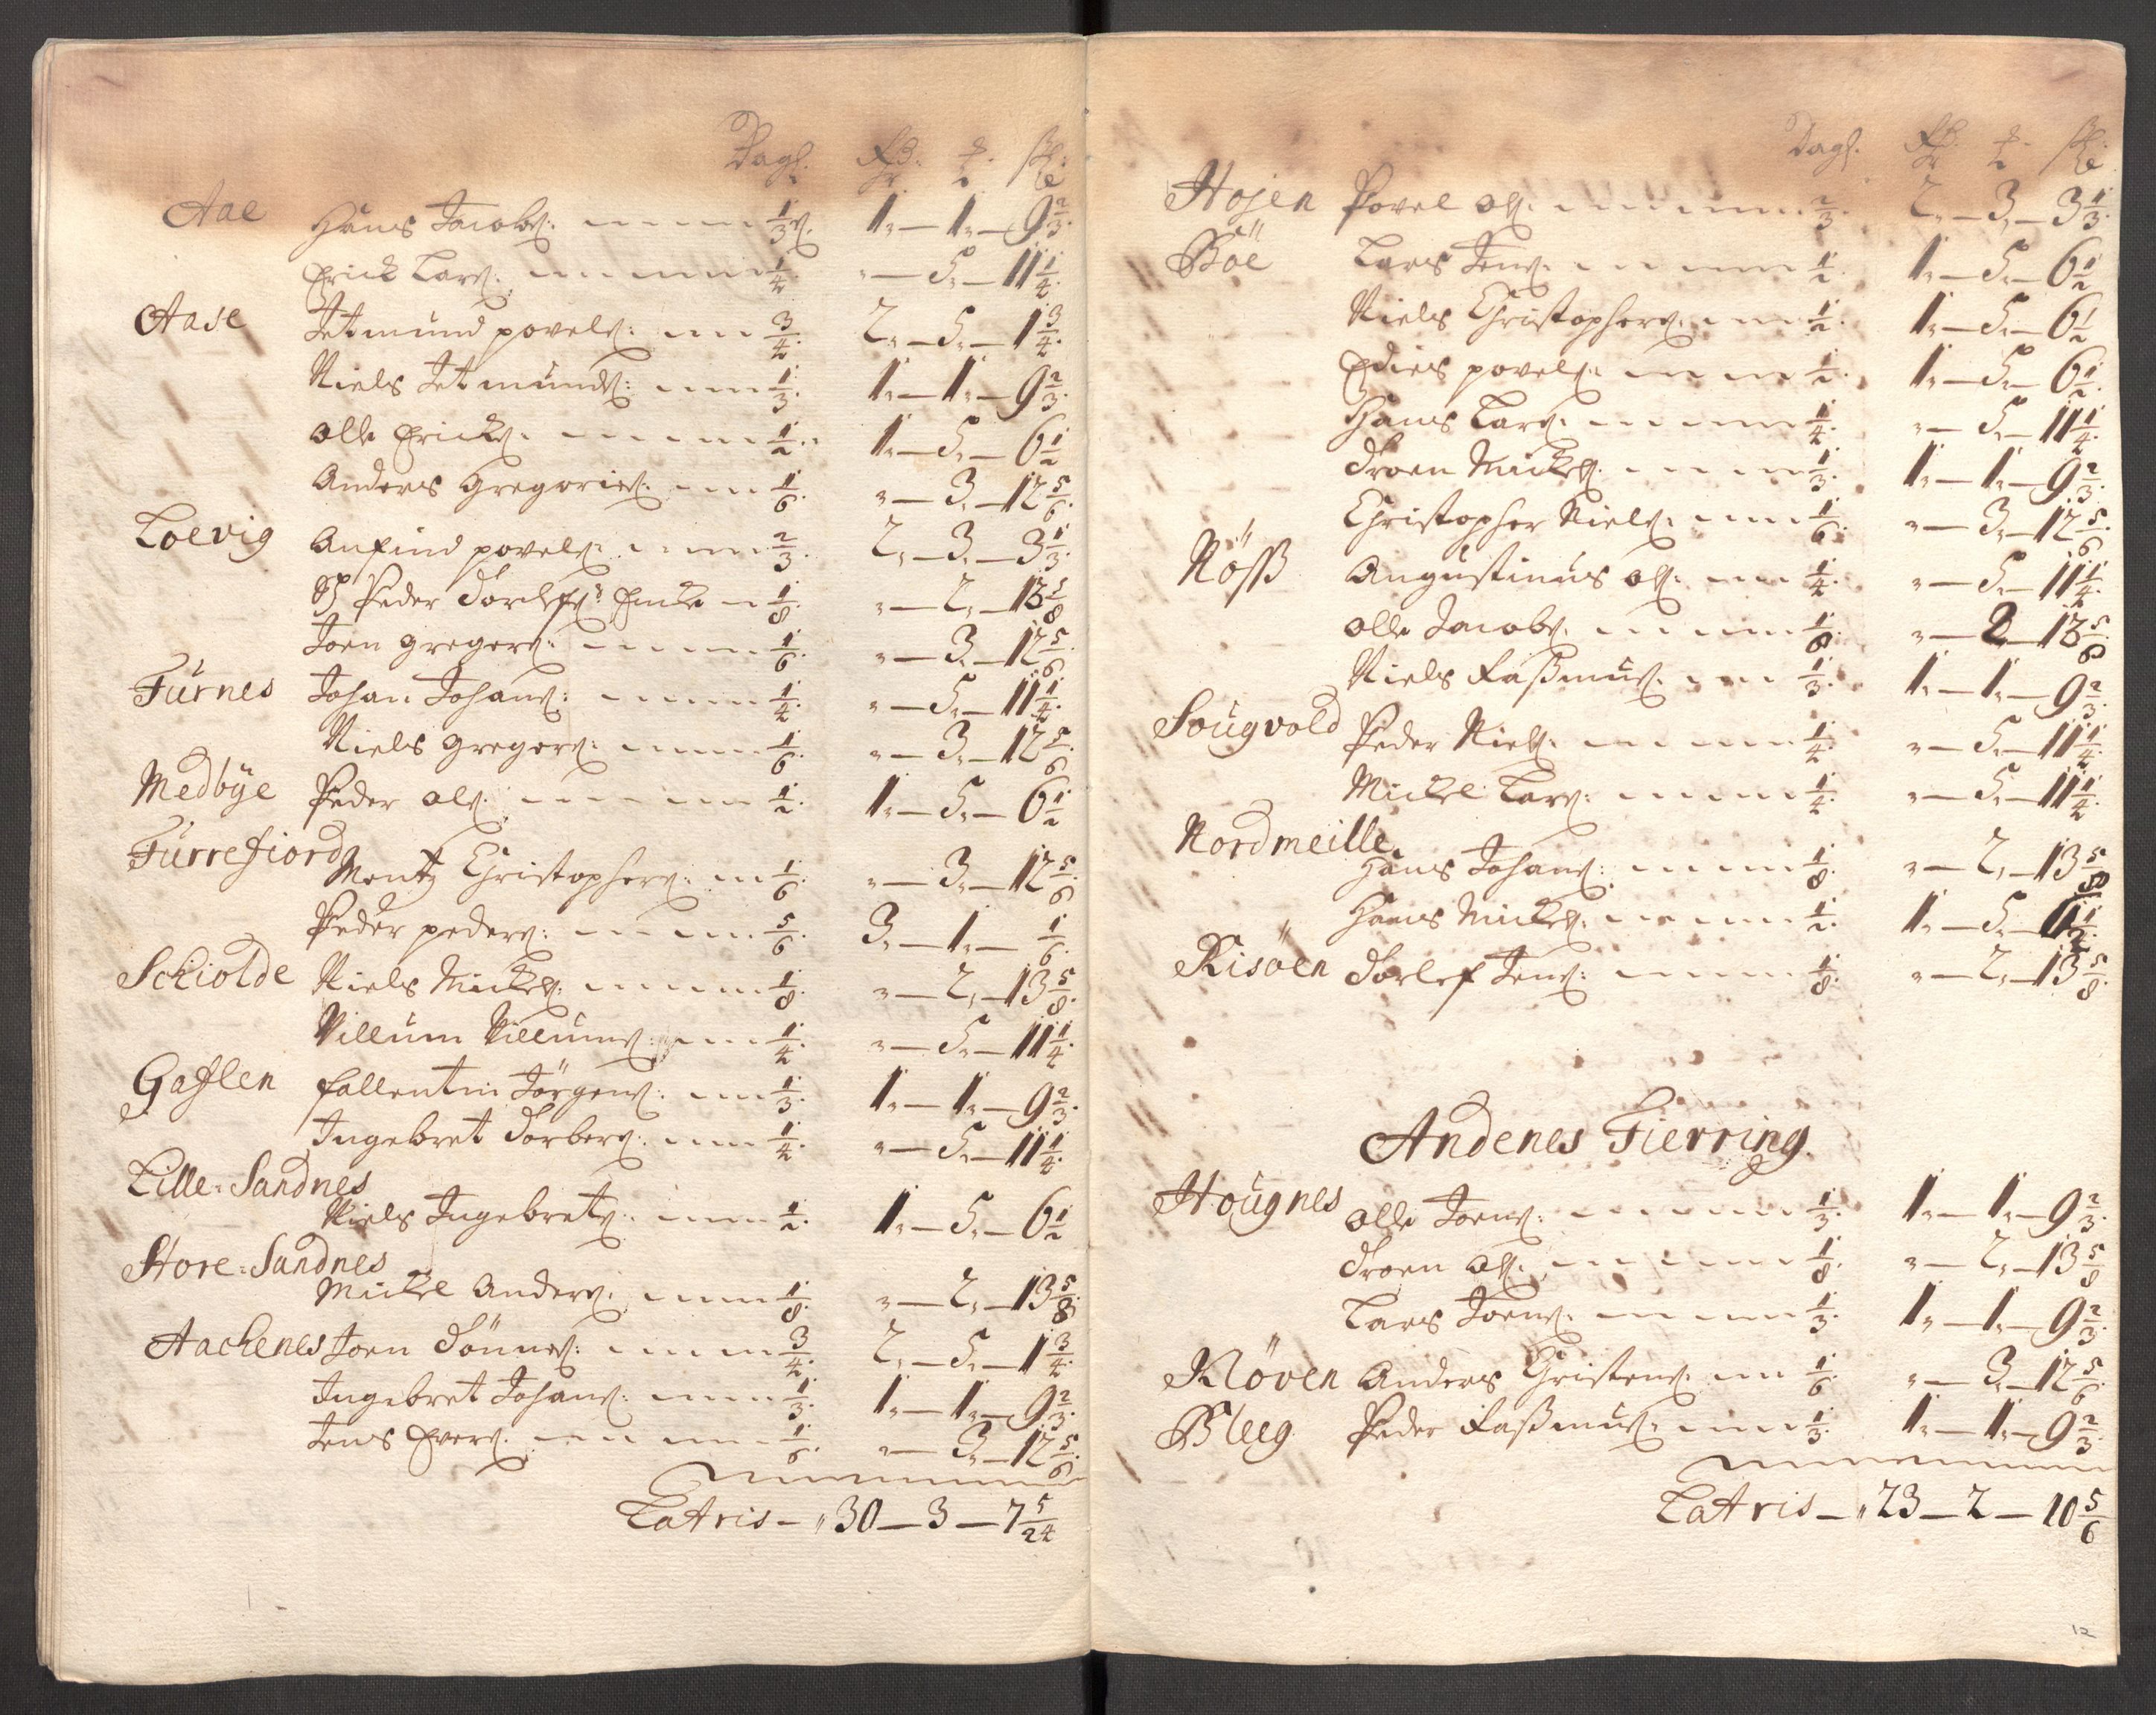 Dagl. Rdr. ℔. sk:
Aae Hans Jacobs: 1/3 1 - 1 - 9 2/3
Erick Lars: 1/4 " - 5 - 11 1/4
Aase Tetmund povels: 3/4 2 - 5 - 1 3/4
Niels Tetmunds: 1/3 1 - 1 - 9 2/3
Olle Ericks. 1/2 1 - 5 - 6 1/2
Anders Gregories: 1/6 " - 3 - 12 5/6
Loevig Anfind povels: 2/3 2 - 3 - 3 1/3
Peder Torlefs: Encke 1/8 " - 2 - 13 5/8
Joen gregers: 1/6 " - 3 - 12 5/6
Fürnes Johan Johans: 1/4 " - 5 - 11 1/4
Niels gregors: 1/6 " - 3 - 12 5/6
Medbÿe Peder Ols: 1/2 1 - 5 - 6 1/2
Fürrefiord Mentz Christophers: 1/6 " - 3 - 12 5/6
Peder peders: 5/6 3 - 1 - 1/6
Schiolde Niels Mickels: 1/8 " - 2 - 13 5/8
Villum Villums: 1/4 " - 5 - 11 1/4
Gaflen fallentin Jörgens: 1/3 1 - 1 - 9 2/3
Ingebret Torbers: 1/4 " - 5 - 11 1/4
Lille-Sandnes
Niels Ingebrets: 1/2 1 - 5 - 6 1/2
Store-Sandnes
Mickel Anders: 1/8 " - 2 - 13 5/8
Aachenes Joen Tönnes: 3/4 2 - 5 - 1 3/4
Ingebret Johans: 1/3 1 - 1 - 9 2/3
Jens Evers: 1/6 " - 3 - 12 5/6
LatAris - " 30 - 3 - 7 5/24
Dagl. Rdr. ℔. sk:
Hojen Povel Ols: 2/3 2 - 3 - 3 1/3
Böe Lars Jens: 1/2 1 - 5 - 6 1/2
Niels Christophers: 1/2 1 - 5 - 6 1/2
Edies povels: 1/2 1 - 5 - 6 1/2
Hans Lars: 1/4 " - 5 - 11 1/4
Troen Mickels: 1/3 1 - 1 - 9 2/3
Christopher Niels: 1/6 " - 3 - 12 5/6
Nöss Augustinus Ols: 1/4 " - 5 - 11 1/4
Olle Jacobs: 1/8 " - 2 - 13 5/8
Niels Rassmus: 1/3 1 - 1 - 9 2/3
Sougvold Peder Niels: 1/4 " - 5 - 11 1/4
Mickel Lars: 1/4 " - 5 - 11 1/4
Nordmeille
Hans Johans: 1/8 " - 2 - 13 5/8
Hans Mickels: 1/2 1 - 5 - 6 1/2
Risöen Torlef Jens: 1/8 " - 2 - 13 5/8
Andenes Fierring.
Hougnes Olle Joens: 1/3 1 - 1 - 9 2/3
Troen Ols: 1/8 " - 2 - 13 5/8
Lars Joens: 1/3 1 - 1 - 9 2/3
Klöven Anders Christens: 1/6 " - 3 - 12 5/6
Bleeg Peder Rassmus: 1/3 1 - 1 - 9 2/3
LatAris - " 23 - 2 - 10 5/6
12